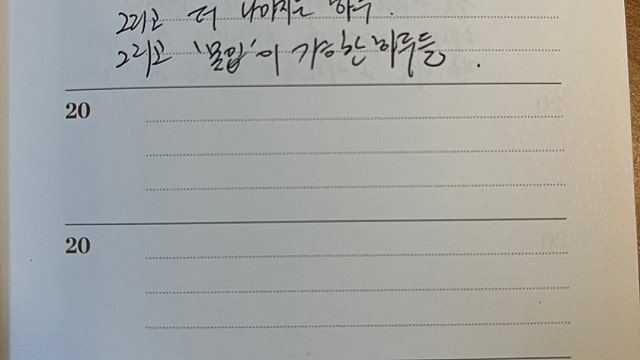 그리고 더 나아지는 하루.
그리고 '몰입'이 가능한 하루들.
20
20